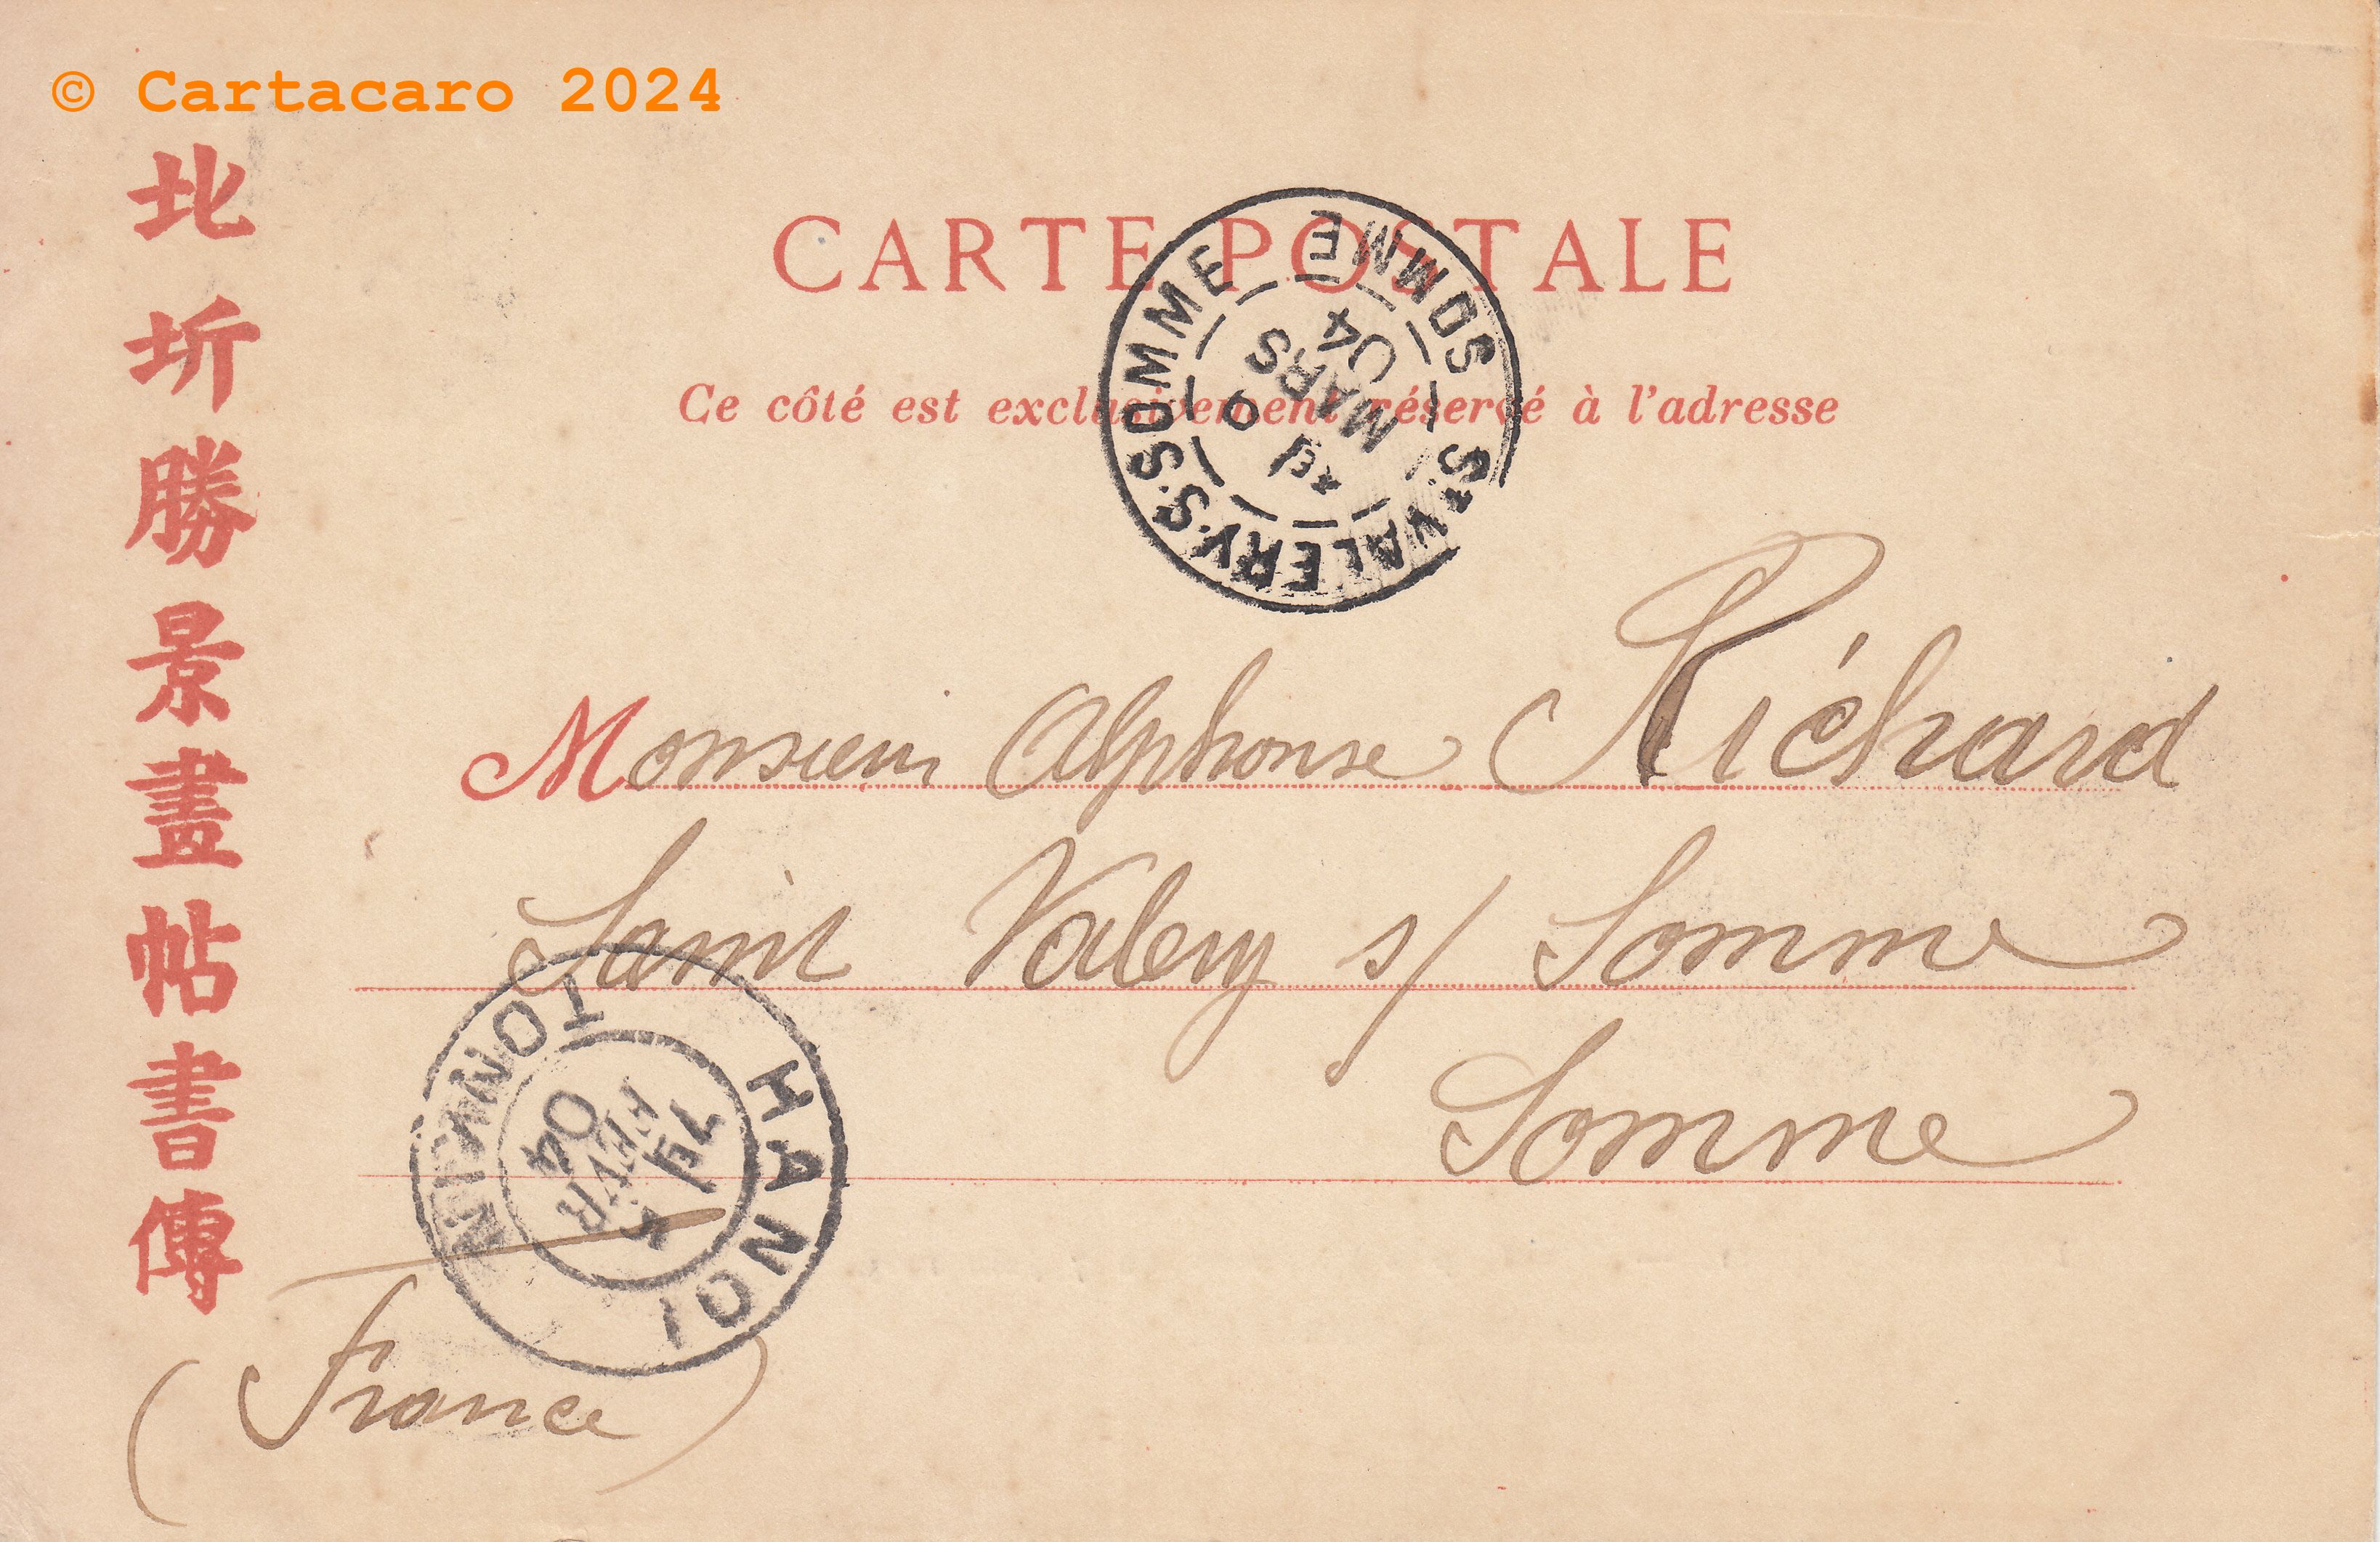 © Cartacaro 2024
北圻勝景畫帖書傳
CARTE POSTALE
Ce côté est exclusivement réservé à l'adresse
ST VALERY-S-SOMME SOMME
9
MARS
04
Monsieur Alphonse Richard
Saint Valery s/ Somme
Somme
HANOI TONKIN
FEVR
04
(France)